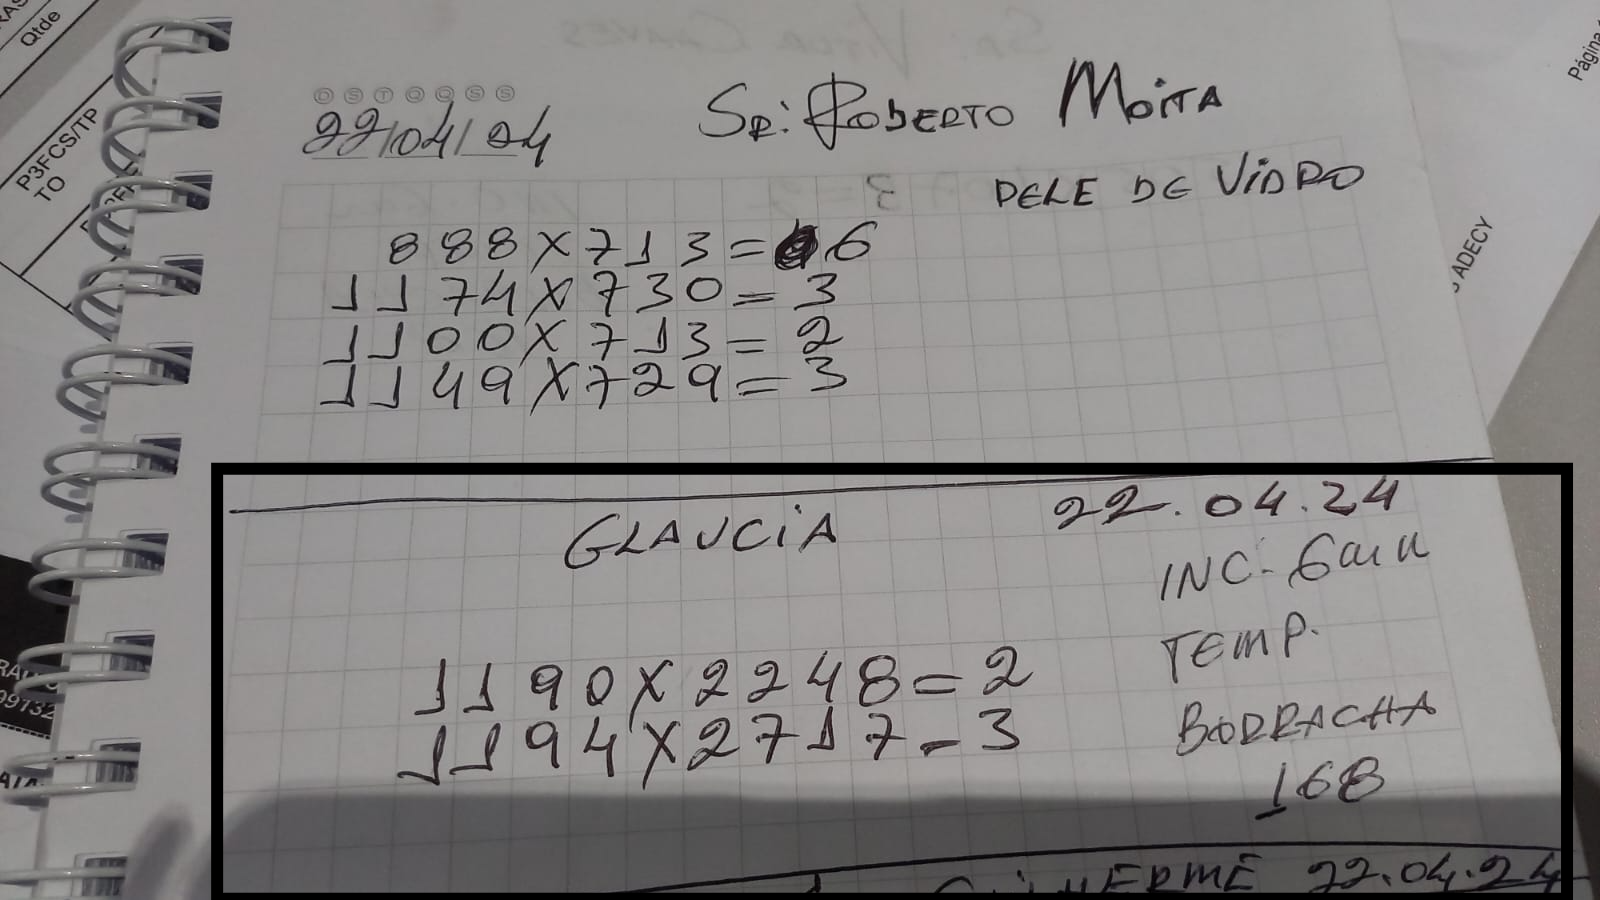 Qtde
P3FCS/TP
TO
D S T Q Q S S
22/04/24
Sr: Roberto Moita
PELE DE VIDRO
888X713=6
1174X730=3
1100X713=2
1149X729=3
Página
ADECY
GLAUCIA
22.04.24
INC. 6mm
TEMP.
BORRACHA
168
1190X2248=2
1194X2717-3
GUILHERME 22.04.24